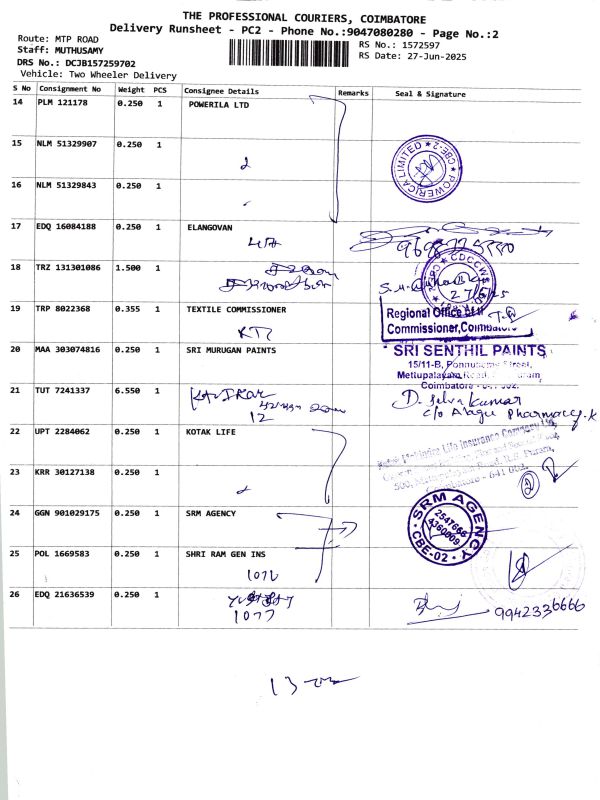 THE PROFESSIONAL COURIERS, COIMBATORE
Delivery Runsheet - PC2 - Phone No.:9047080280 - Page No.:2
Route: MTP ROAD
Staff: MUTHUSAMY
DRS No.: DCJB157259702
Vehicle: Two Wheeler Delivery
RS No.: 1572597
RS Date: 27-Jun-2025
S No Consignment No Weight PCS Consignee Details Remarks Seal & Signature
14 PLM 121178 0.250 1 POWERILA LTD
15 NLM 51329907 0.250 1
POWERICA LIMITED ★ CBE-2 ★
16 NLM 51329843 0.250 1
17 EDQ 16084188 0.250 1 ELANGOVAN
18 TRZ 131301086 1.500 1
27/6/25
19 TRP 8022368 0.355 1 TEXTILE COMMISSIONER
Regional Office of
Commissioner, Coimbatore
20 MAA 303074816 0.250 1 SRI MURUGAN PAINTS
SRI SENTHIL PAINTS
15/11-B,
Mettupalayam Road,
Coimbatore
21 TUT 7241337 6.550 1
12
D. Selva Kumar
c/o Alagu Pharmacy
22 UPT 2284062 0.250 1 KOTAK LIFE
Life Insurance Company Ltd
23 KRR 30127138 0.250 1
2
24 GGN 901029175 0.250 1 SRM AGENCY
SRM AGENCY
2547666
4360909
CBE-02
25 POL 1669583 0.250 1 SHRI RAM GEN INS
1076
26 EDQ 21636539 0.250 1
1077
9942336666
13